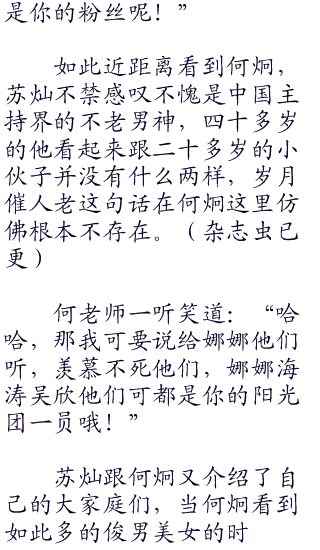 是你的粉丝呢！”
如此近距离看到何炯，
苏灿不禁感叹不愧是中国主
持界的不老男神，四十多岁
的他看起来跟二十多岁的小
伙子并没有什么两样，岁月
催人老这句话在何炯这里仿
佛根本不存在。（杂志虫已
更）
何老师一听笑道：“哈
哈，那我可要说给娜娜他们
听，羡慕不死他们，娜娜海
涛吴欣他们可都是你的阳光
团一员哦！”
苏灿跟何炯又介绍了自
己的大家庭们，当何炯看到
如此多的俊男美女的时